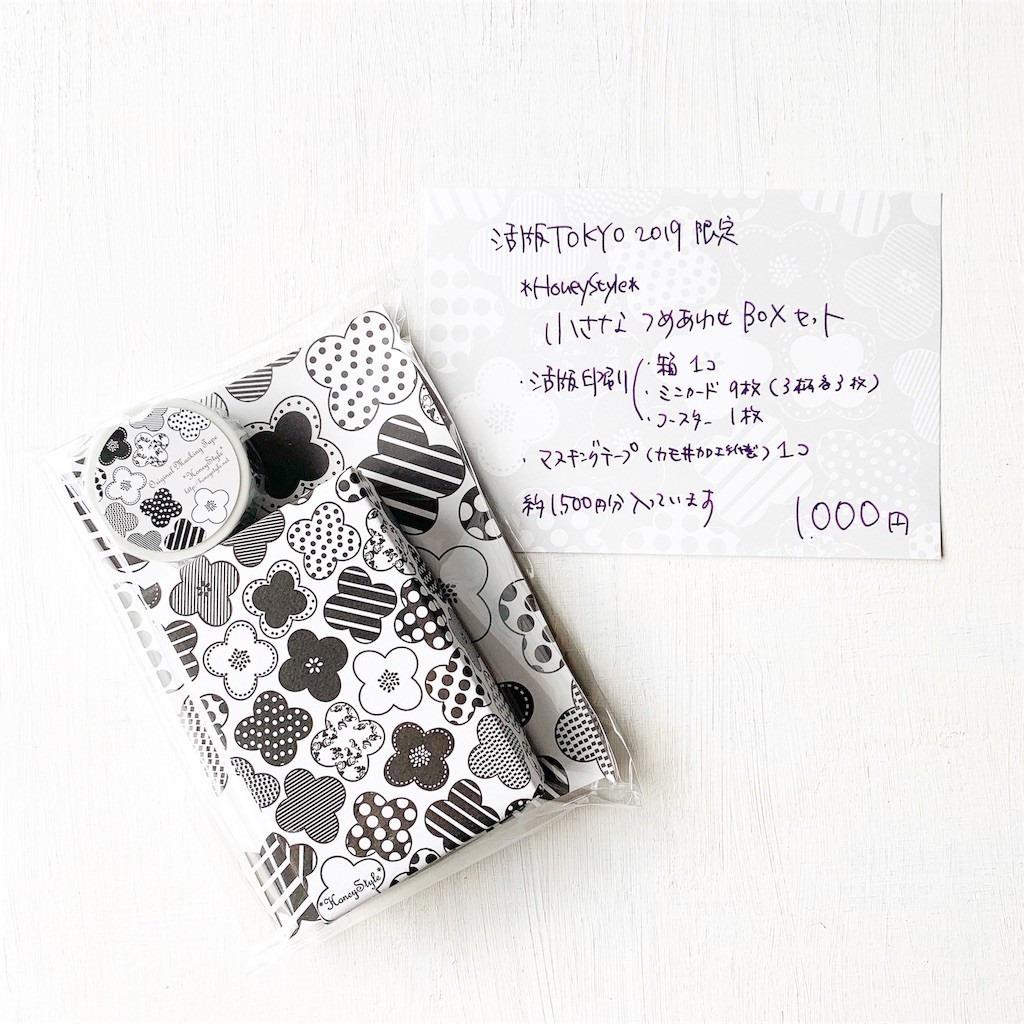 活版TOKYO 2019 限定
*HoneyStyle*
小さな つめあわせ BOX セット
・活版印刷り
・箱 1コ
・ミニカード 9枚 (3柄各3枚)
・コースター 1枚
・マスキングテープ (カモ井加工紙製) 1コ
約1,500円分入っています
1,000円
Original Masking Tape
*HoneyStyle*
http://honeystyle.net
*HoneyStyle*